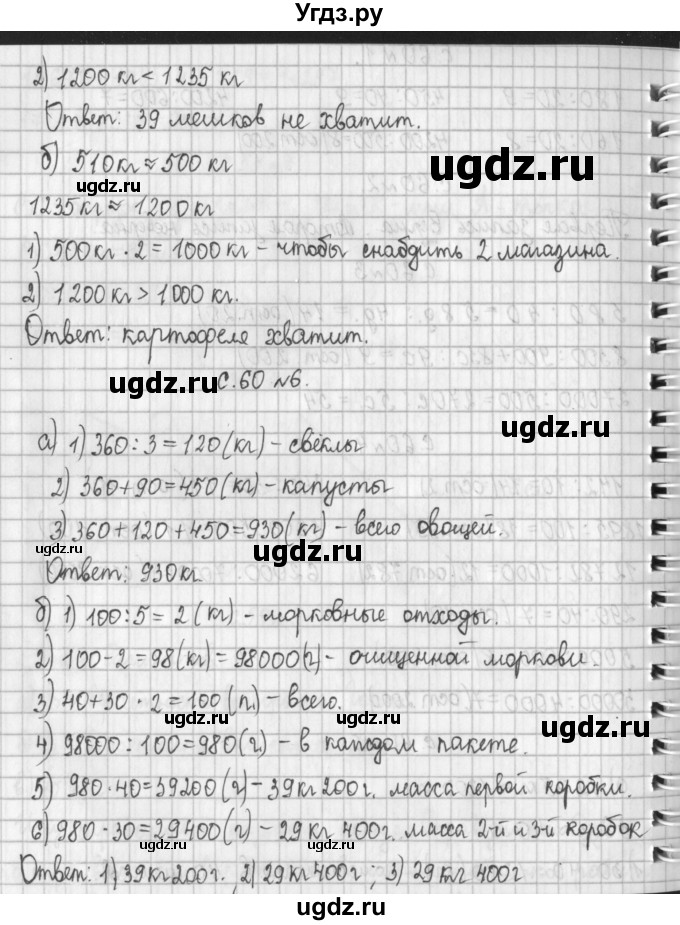 Угдз.ру
2) 1200 кг < 1235 кг
Ответ: 39 мешков не хватит.
б) 510 кг ≈ 500 кг
ugdz.ru
ugdz.ru
1235 кг ≈ 1200 кг
ugdz.ru
1) 500 кг · 2 = 1000 кг - чтобы снабдить 2 магазина.
2) 1200 кг > 1000 кг.
Ответ: картофеля хватит.
ugdz.ru
с.60 №6.
ugdz.ru
а) 1) 360 : 3 = 120 (кг) - свёклы
2) 360 + 90 = 450 (кг) - капусты
3) 360 + 120 + 450 = 930 (кг) - всего овощей.
ugdz.ru
ugdz.ru
Ответ: 930 кг
б) 1) 100 : 5 = 2 (кг) - морковные отходы.
ugdz.ru
2) 100 - 2 = 98 (кг) = 98000 (г) - очищенной моркови
3) 40 + 30 · 2 = 100 (п.) - всего.
ugdz.ru
ugdz.ru
ugdz.ru
4) 98000 : 100 = 980 (г) - в каждом пакете.
5) 980 · 40 = 39200 (г) - 39 кг 200 г. масса первой коробки.
6) 980 · 30 = 29400 (г) - 29 кг 400 г. масса 2-й и 3-й коробок
ugdz.ru
ugdz.ru
Ответ: 1) 39 кг 200 г. 2) 29 кг 400 г; 3) 29 кг 400 г
ugdz.ru